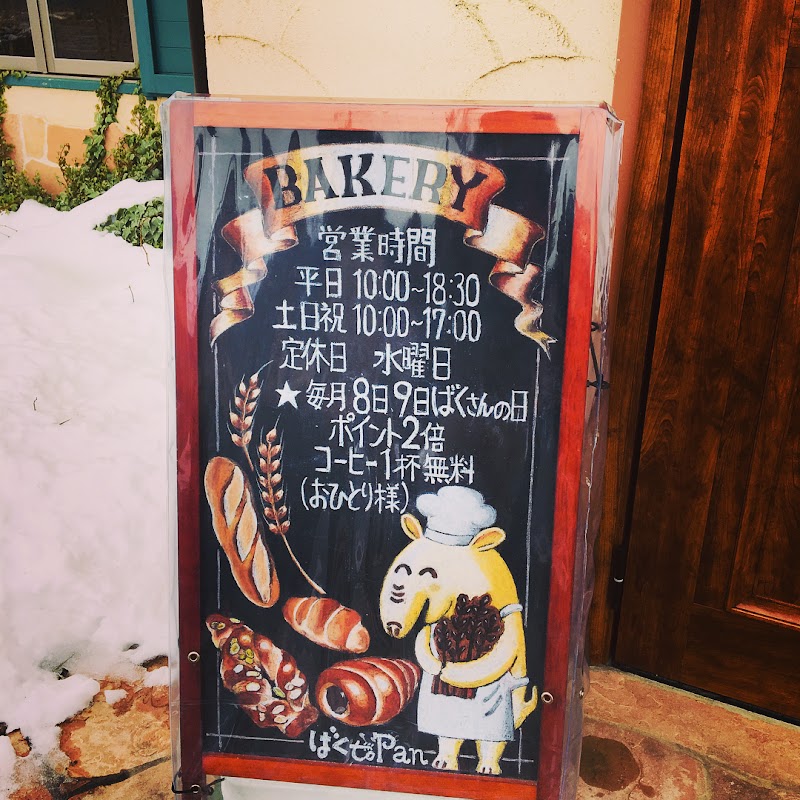 BAKERY
営業時間
平日 10:00~18:30
土日祝 10:00~17:00
定休日 水曜日
★毎月8日、9日ばくさんの日
ポイント2倍
コーヒー1杯無料
(おひとり様)
ばくぜPan